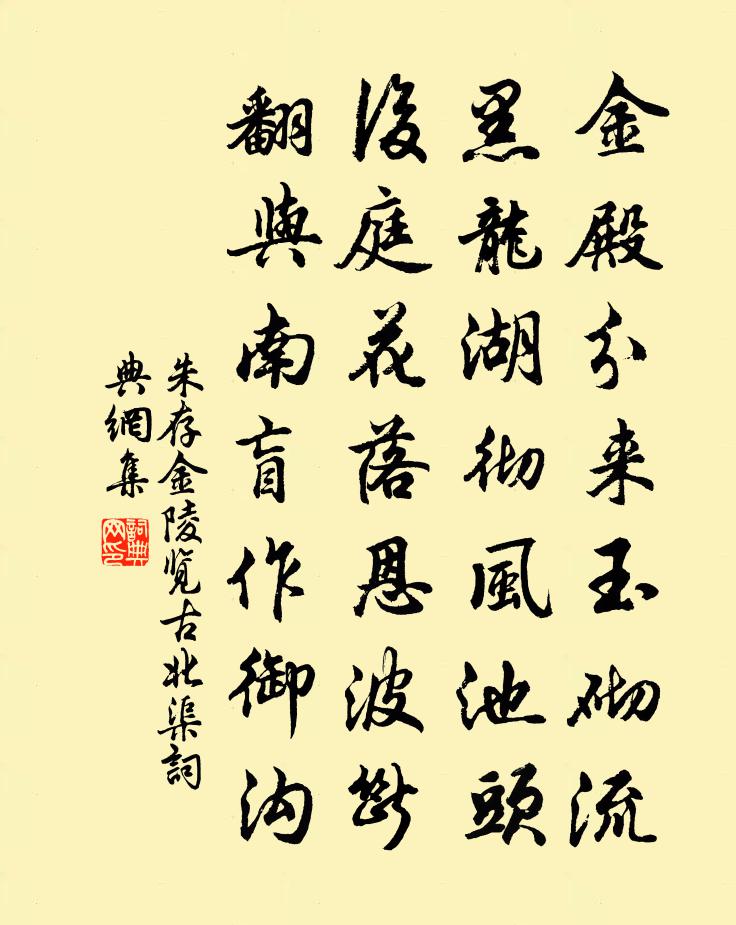 金殿分来玉砌流
黑龍湖彻風池頭
後庭花落恩波斷
翻與南盲作御沟
朱存金陵览古北渠詞
典網集
詞典
网印